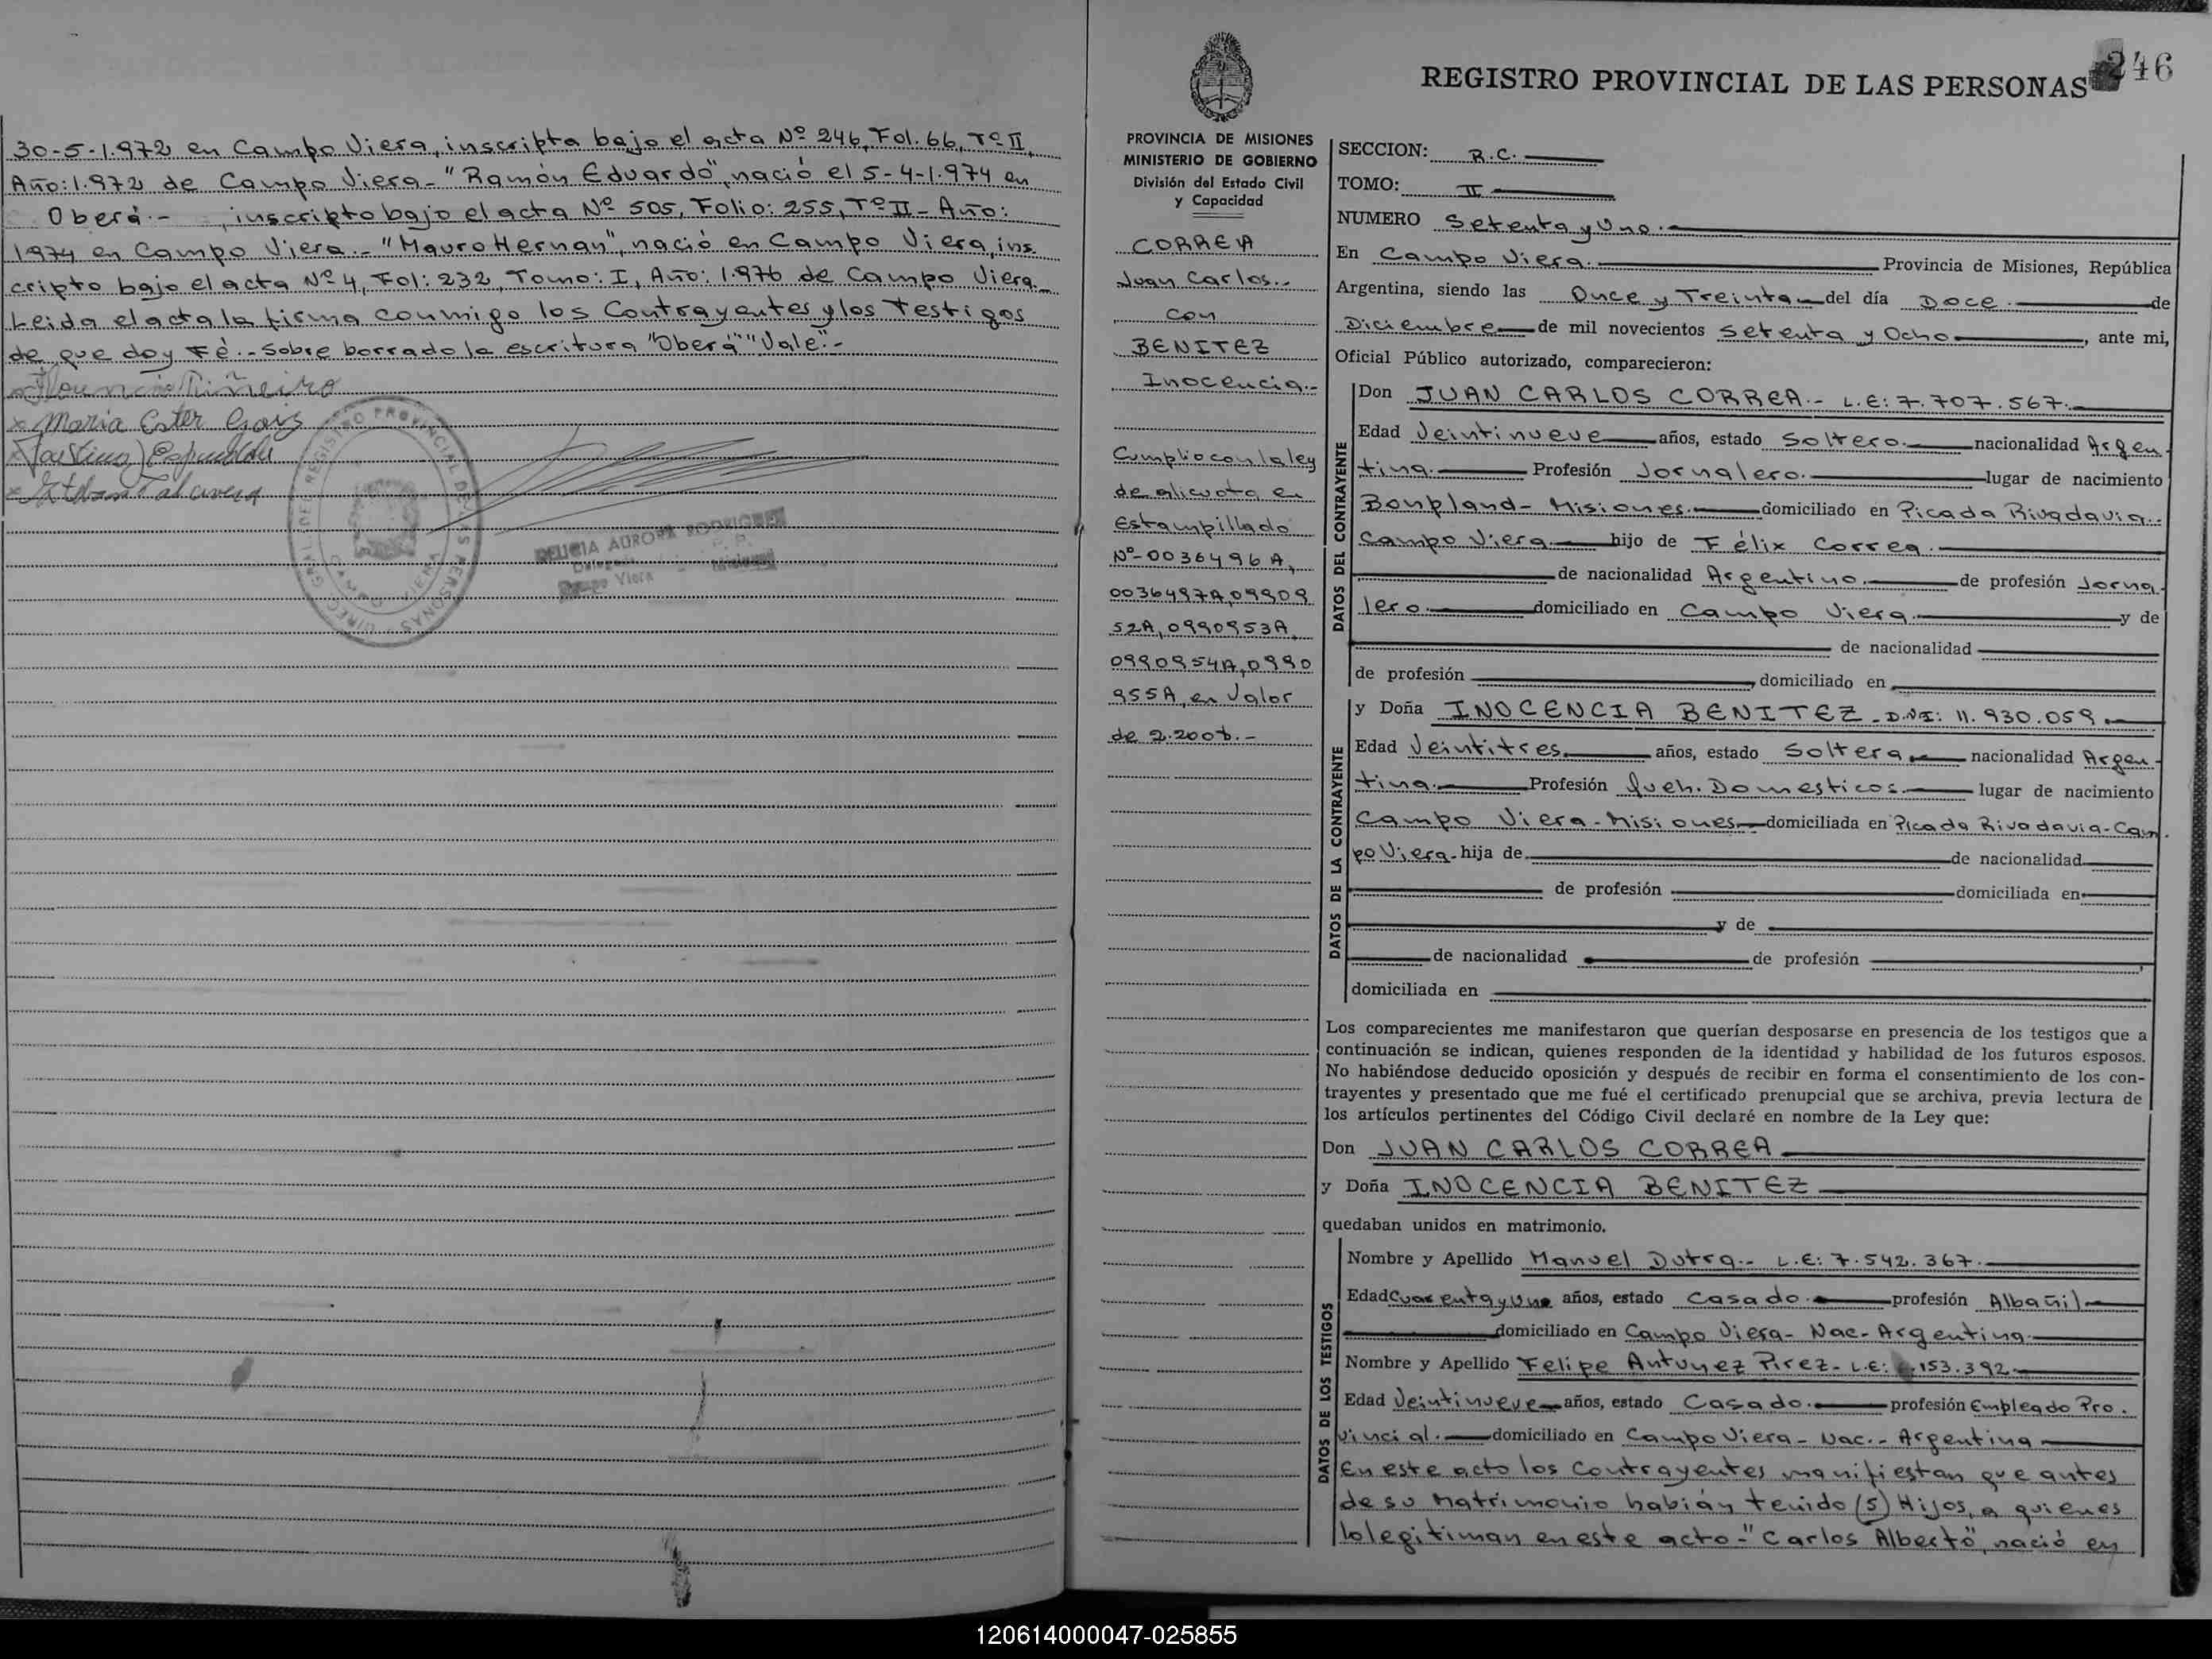 30-5-1.972 en Campo Viera, inscripta bajo el acta Nº 246, Fol. 66, Tº II,
Año: 1.972 de Campo Viera - "Ramón Eduardo", nació el 5-4-1.974 en
Oberá.- , inscripto bajo el acta Nº 505, Folio: 255, Tº II - Año:
1974 en Campo Viera.- "Mauro Hernan", nació en Campo Viera, ins
cripto bajo el acta Nº 4, Fol: 232, Tomo: I, Año: 1.976 de Campo Viera.-
Leida el acta la firma conmigo los Contrayentes y los Testigos
de que doy Fé.- Sobre borrado la escritura "Oberá" "Vale".-
Piñeiro
x Maria Ester
REGISTRO PROVINCIAL DE LAS PERSONAS
CAMPO VIERA
AURORA RODRIGUEZ
Campo Viera
246
REGISTRO PROVINCIAL DE LAS PERSONAS
PROVINCIA DE MISIONES
MINISTERIO DE GOBIERNO
División del Estado Civil
y Capacidad
CORREA
Juan Carlos.-
con
BENITEZ
Inocencia.-
Cumplio con la ley
de alicuota en
Estampillado
Nº-0036496A,
0036497A, 09909
52A, 0990953A,
0990954A, 0990
955A, en Valor
de 2.200
SECCION: R.C.
TOMO: II
NUMERO Setenta y Uno.-
En Campo Viera. Provincia de Misiones, República
Argentina, siendo las Once y Treinta del día Doce. de
Diciembre de mil novecientos Setenta y Ocho , ante mi,
Oficial Público autorizado, comparecieron:
DATOS DEL CONTRAYENTE
Don JUAN CARLOS CORREA.- L.E: 7.707.567.-
Edad Veintinueve años, estado Soltero. nacionalidad Argen-
tina. Profesión Jornalero. lugar de nacimiento
Bonpland- Misiones. domiciliado en Picada Rivadavia.-
Campo Viera hijo de Félix Correa.
de nacionalidad Argentino. de profesión Jorna-
lero. domiciliado en Campo Viera. y de
de nacionalidad
de profesión , domiciliado en
DATOS DE LA CONTRAYENTE
y Doña INOCENCIA BENITEZ - D.N.I: 11.930.059.
Edad Veintitres. años, estado Soltera nacionalidad Argen-
tina. Profesión Queh. Domesticos. lugar de nacimiento
Campo Viera - Misiones domiciliada en Picada Rivadavia-Cam-
po Viera. hija de de nacionalidad
de profesión domiciliada en
y de
de nacionalidad de profesión
domiciliada en
Los comparecientes me manifestaron que querían desposarse en presencia de los testigos que a
continuación se indican, quienes responden de la identidad y habilidad de los futuros esposos.
No habiéndose deducido oposición y después de recibir en forma el consentimiento de los con-
trayentes y presentado que me fué el certificado prenupcial que se archiva, previa lectura de
los artículos pertinentes del Código Civil declaré en nombre de la Ley que:
Don JUAN CARLOS CORREA
y Doña INOCENCIA BENITEZ
quedaban unidos en matrimonio.
DATOS DE LOS TESTIGOS
Nombre y Apellido Manuel Dutra.- L.E: 7.542.367.
Edad Cuarenta y Uno años, estado Casado. profesión Albañil
domiciliado en Campo Viera- Nac- Argentina.
Nombre y Apellido Felipe Antunez Pirez- L.E: .153.392
Edad Veintinueve años, estado Casado. profesión Empleado Pro.
vincial. domiciliado en Campo Viera - Nac.- Argentina
En este acto los Contrayentes manifiestan que antes
de su Matrimonio habián tenido (5) Hijos, a quienes
lolegitiman en este acto - "Carlos Alberto", nació en
120614000047-025855